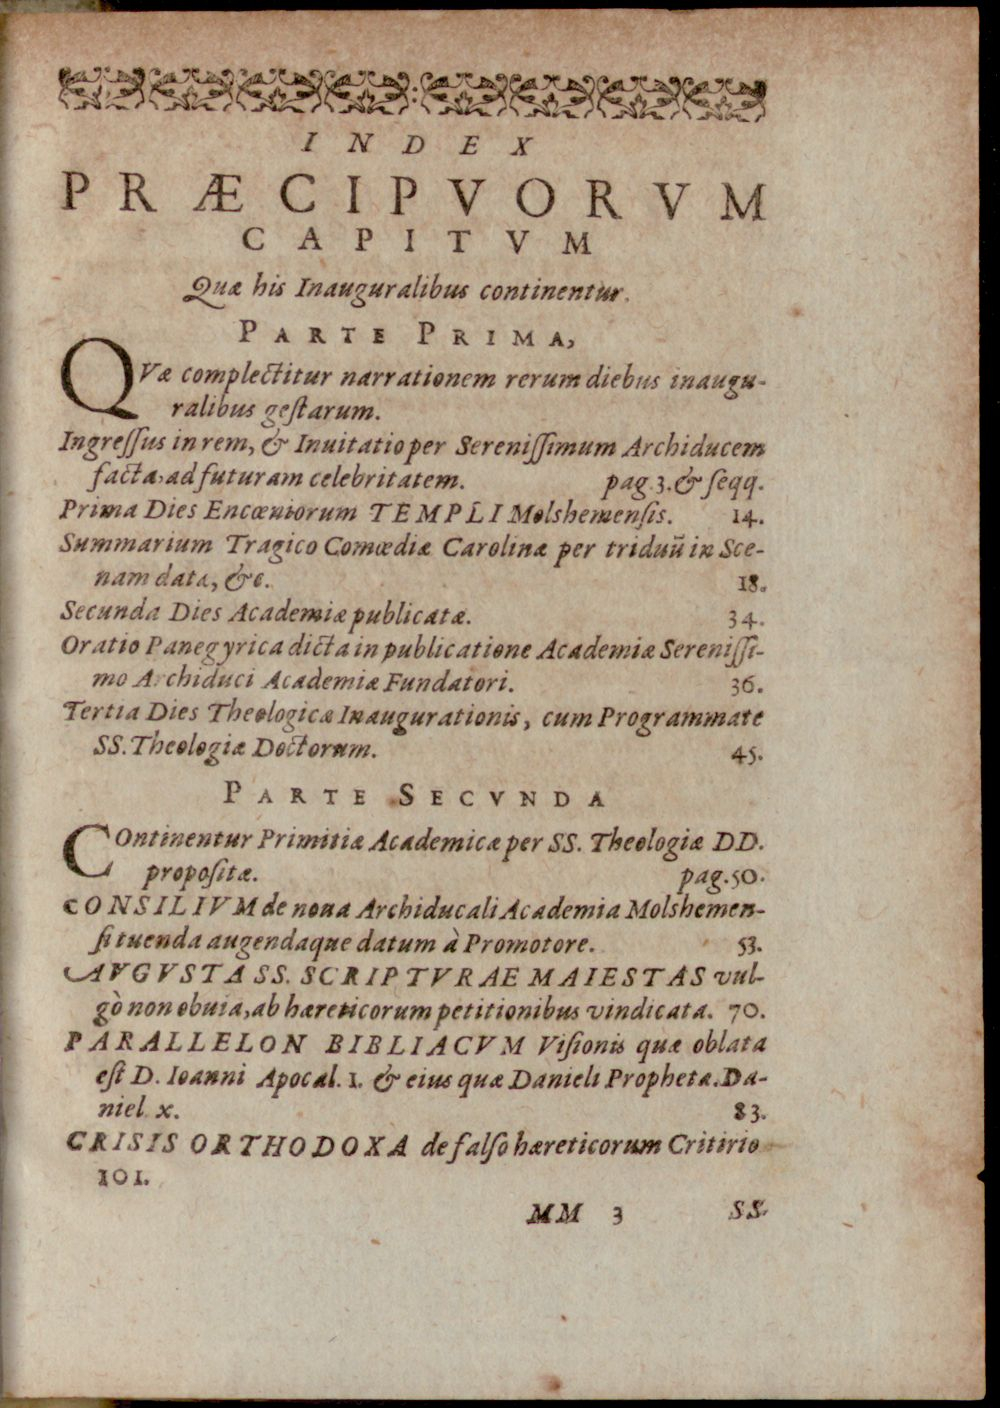 INDEX
PRÆCIPVORVM
CAPITVM
Quæ his Inauguralibus continentur.
PARTE PRIMA,
QVæ complectitur narrationem rerum diebus inaugu-
ralibus geſtarum.
Ingreſſus in rem, & Inuitatio per Sereniſſimum Archiducem
facta, ad futuram celebritatem. pag. 3. & ſeqq.
Prima Dies Encœniorum TEMPLI Molshemenſis. 14.
Summarium Tragico Comœdiæ Carolinæ per triduũ in Sce-
nam data, &c. 18.
Secunda Dies Academiæ publicatæ. 34.
Oratio Panegyrica dicta in publicatione Academiæ Sereniſſi-
mo Archiduci Academiæ Fundatori. 36.
Tertia Dies Theologicæ Inaugurationis, cum Programmate
SS. Theologiæ Doctorum. 45.
PARTE SECVNDA
COntinentur Primitiæ Academicæ per SS. Theologiæ DD.
propoſitæ. pag. 50.
CONSILIVM de noua Archiducali Academia Molshemen-
ſi tuenda augendaque datum à Promotore. 53.
AVGVSTA SS. SCRIPTVRAE MAIESTAS vul-
gò non obuia, ab hæreticorum petitionibus vindicata. 70.
PARALLELON BIBLIACVM Viſionis quæ oblata
eſt D. Ioanni Apocal. 1. & eius quæ Danieli Propheta. Da-
niel x. 83.
CRISIS ORTHODOXA de falſo hæreticorum Critirio
101.
MM 3 SS.